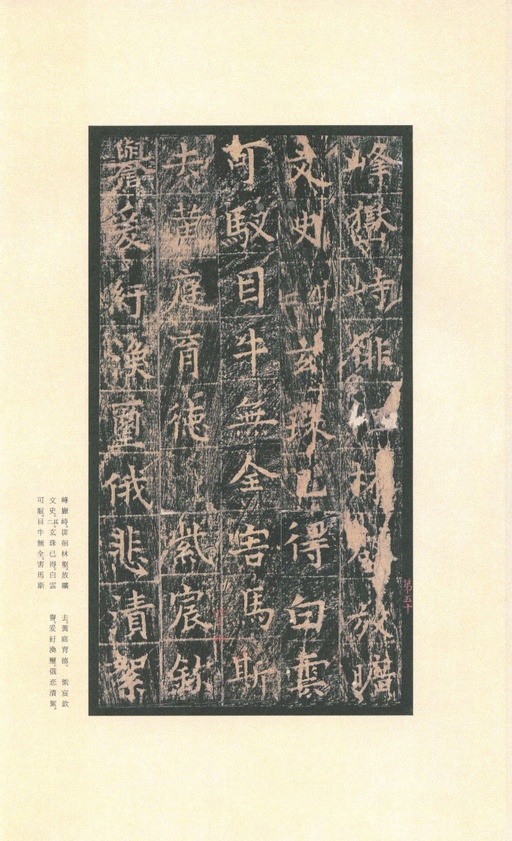 峰巘時徘徊林壑放曠
文史玄珠已得白雲
可馭目牛無全害馬斯
去黃庭育德 紫宸欽
響爰紆渙璽俄悲漬絮
第五十
峰巘時徘徊林壑放曠
文史玄珠已得白雲
可馭目牛無全害馬斯
去黃庭育德紫宸欽
響爰紆渙璽俄悲漬絮